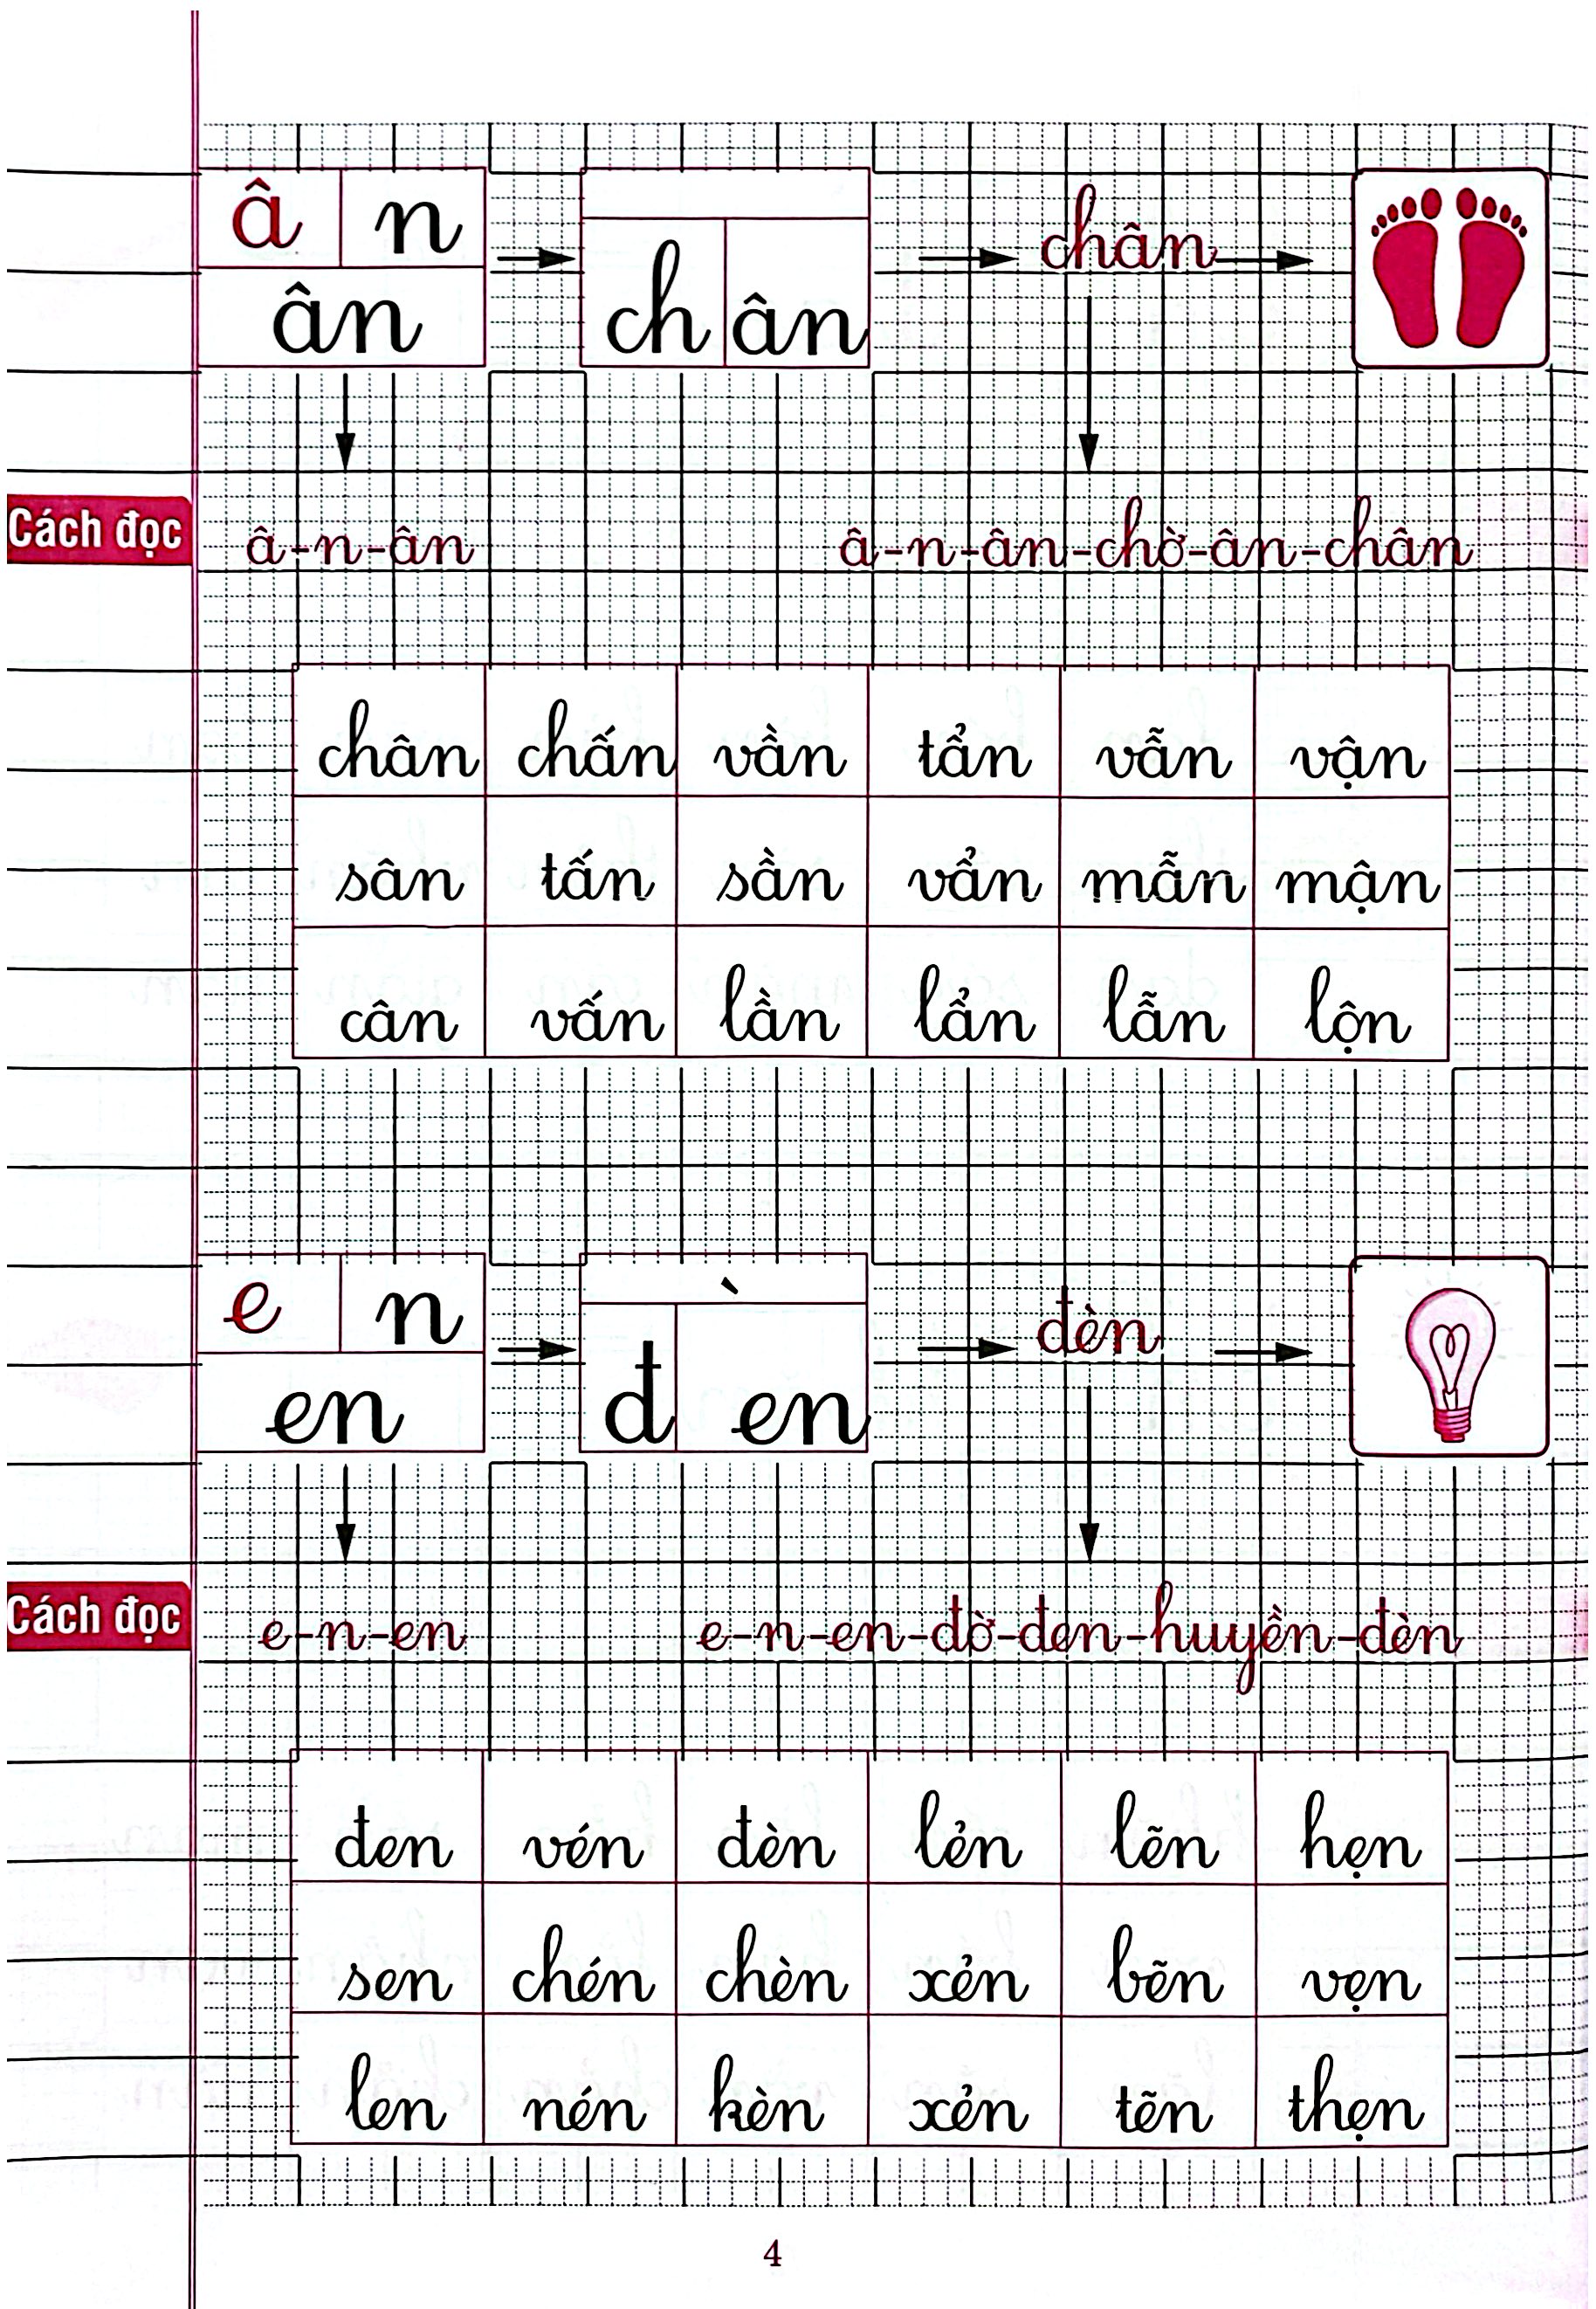 â n
ân
ch ân
chân
Cách đọc
â-n-ân
â-n-ân-chờ-ân-chân
chân chấn vần tẩn vẫn vận
sân tấn sần vẩn mẫn mận
cân vấn lần lẩn lẫn lộn
e n
en
đ en
đèn
Cách đọc
e-n-en
e-n-en-đờ-đen-huyền-đèn
đen vén đèn lẻn lẽn hẹn
sen chén chèn xẻn bẽn vẹn
len nén kèn xẻn tẽn thẹn
4